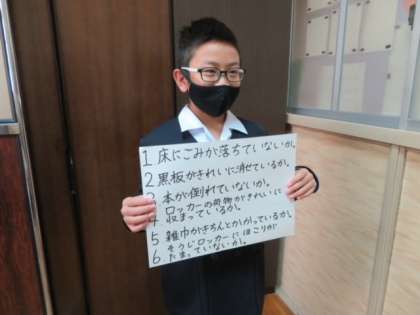 1 床にごみが落ちていないか。
2 黒板がきれいに消せているか。
3 本が倒れていないか。
4. ロッカーの荷物がきれいに
収まっているか。
5 雑巾がきちんとかかっているか。
6. そうじロッカーにほこりが
たまっていないか。